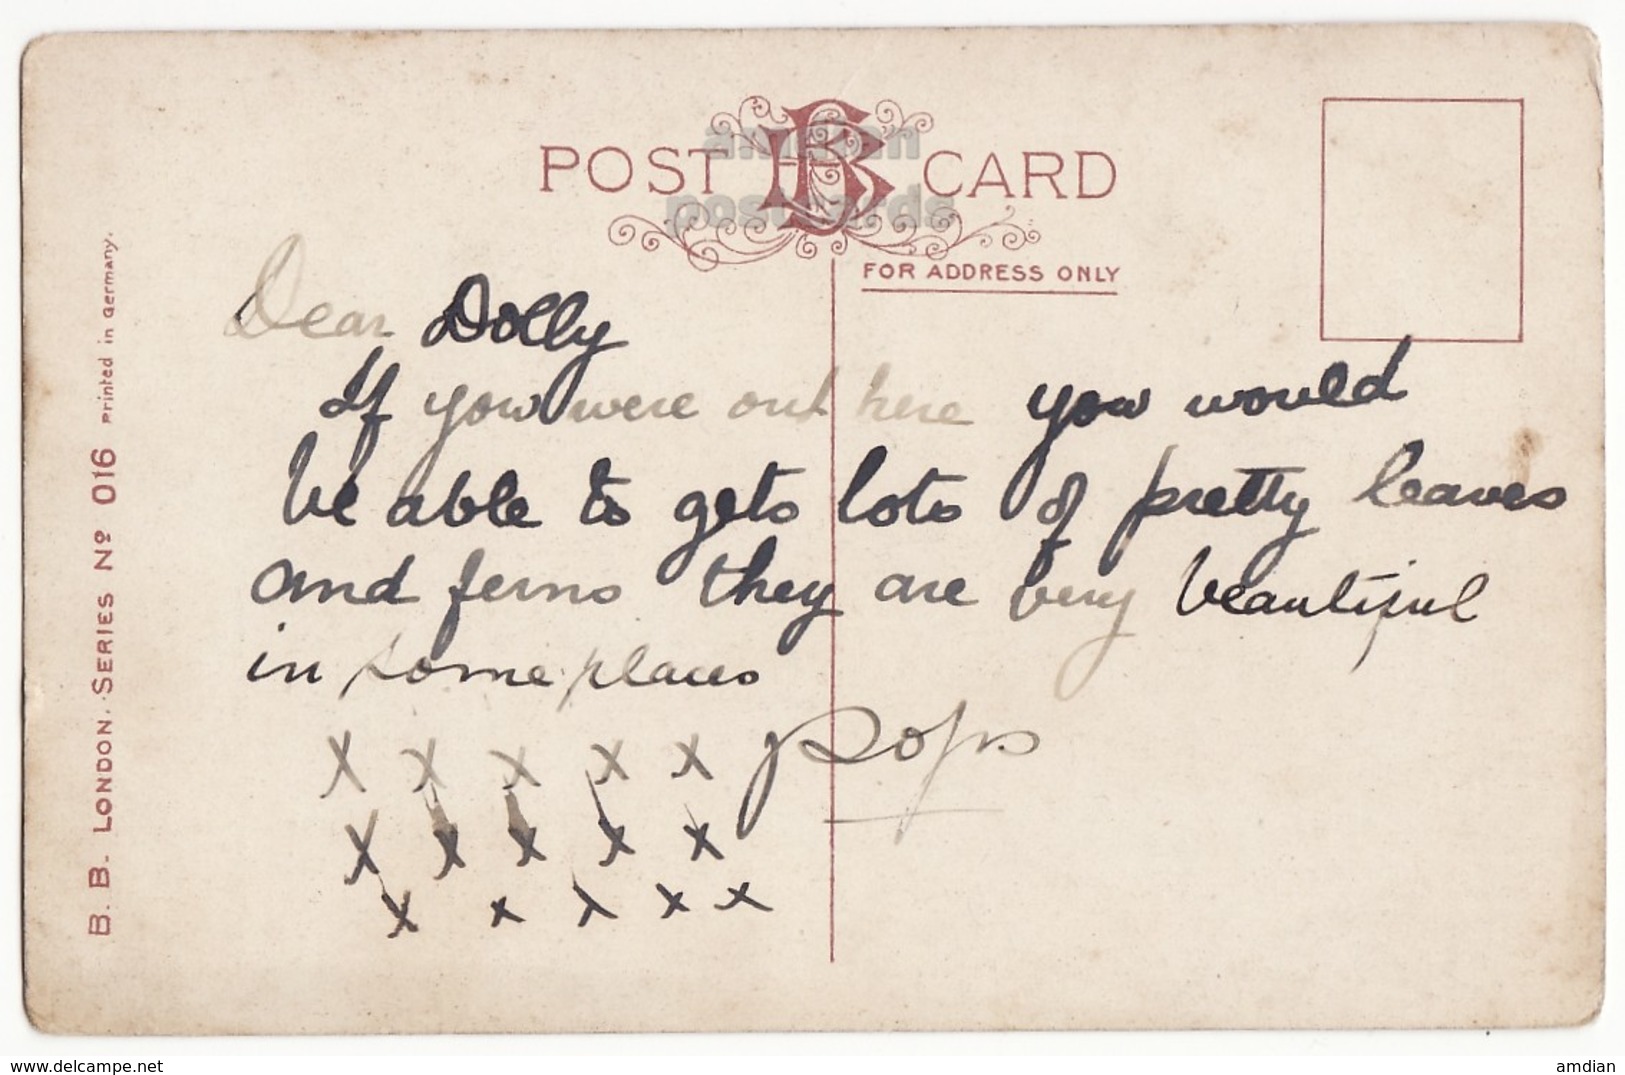 POST CARD
amdian
postcards
FOR ADDRESS ONLY
Dear Dolly
If you were out here you would
be able to gets lots of pretty leaves
and ferns they are very beautiful
in some places
x x x x x Pops
x x x x x
x x x x x
B. B. LONDON. SERIES Nº 016 Printed in Germany.
delcampe.net
amdian